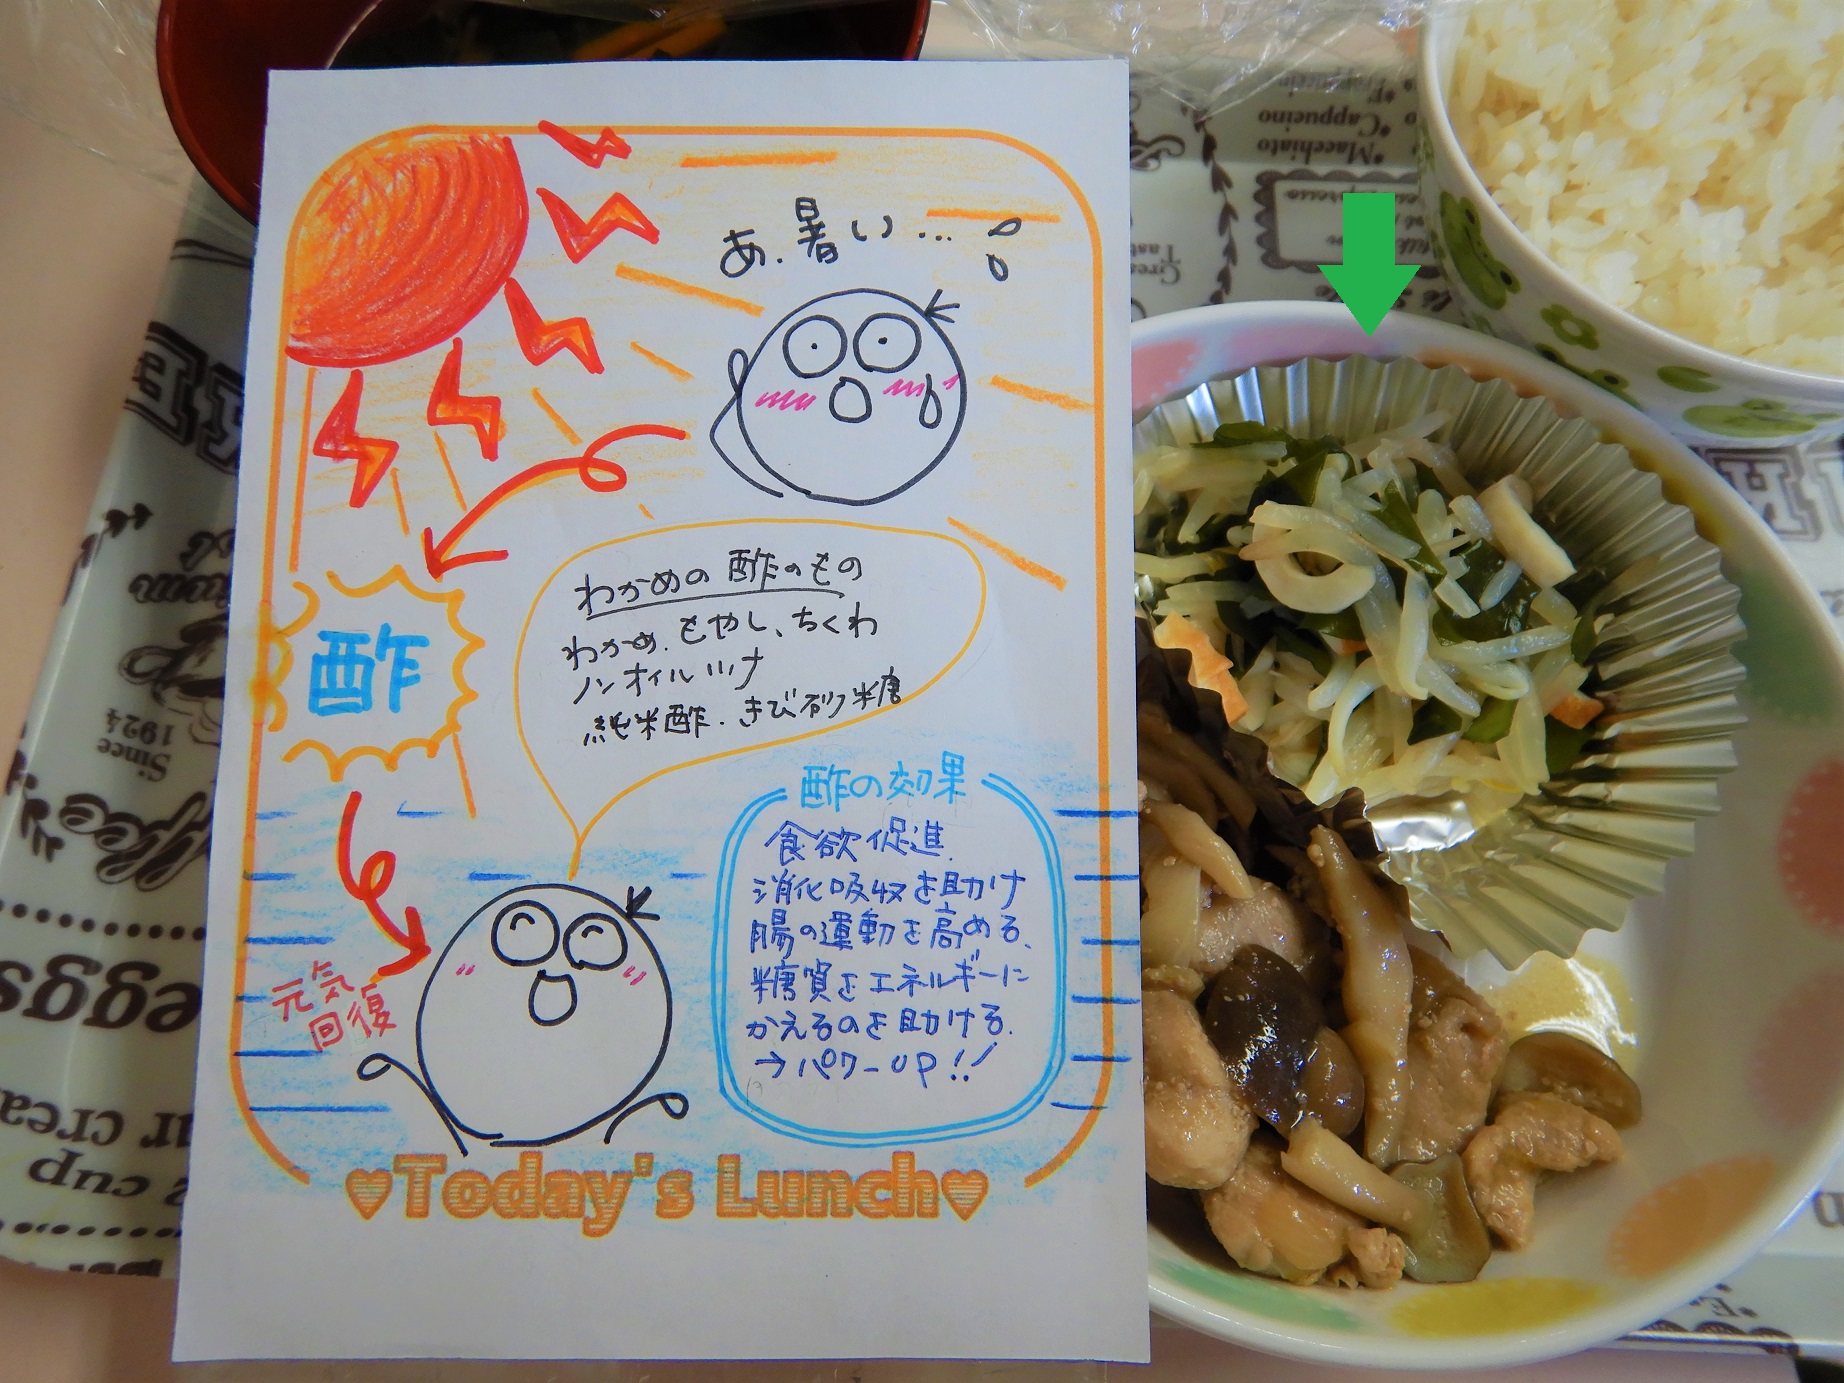 あ、暑い…
酢
わかめの酢のもの
わかめ、もやし、ちくわ
ノンオイルツナ
純米酢、きび砂糖
酢の効果
食欲促進
消化吸収を助け
腸の運動を高める、
糖質をエネルギーに
かえるのを助ける。
→パワーUP!!
元気
回復
♥Today's Lunch♥
Cappucino
Macchiato
Since
1924
eggs
cup